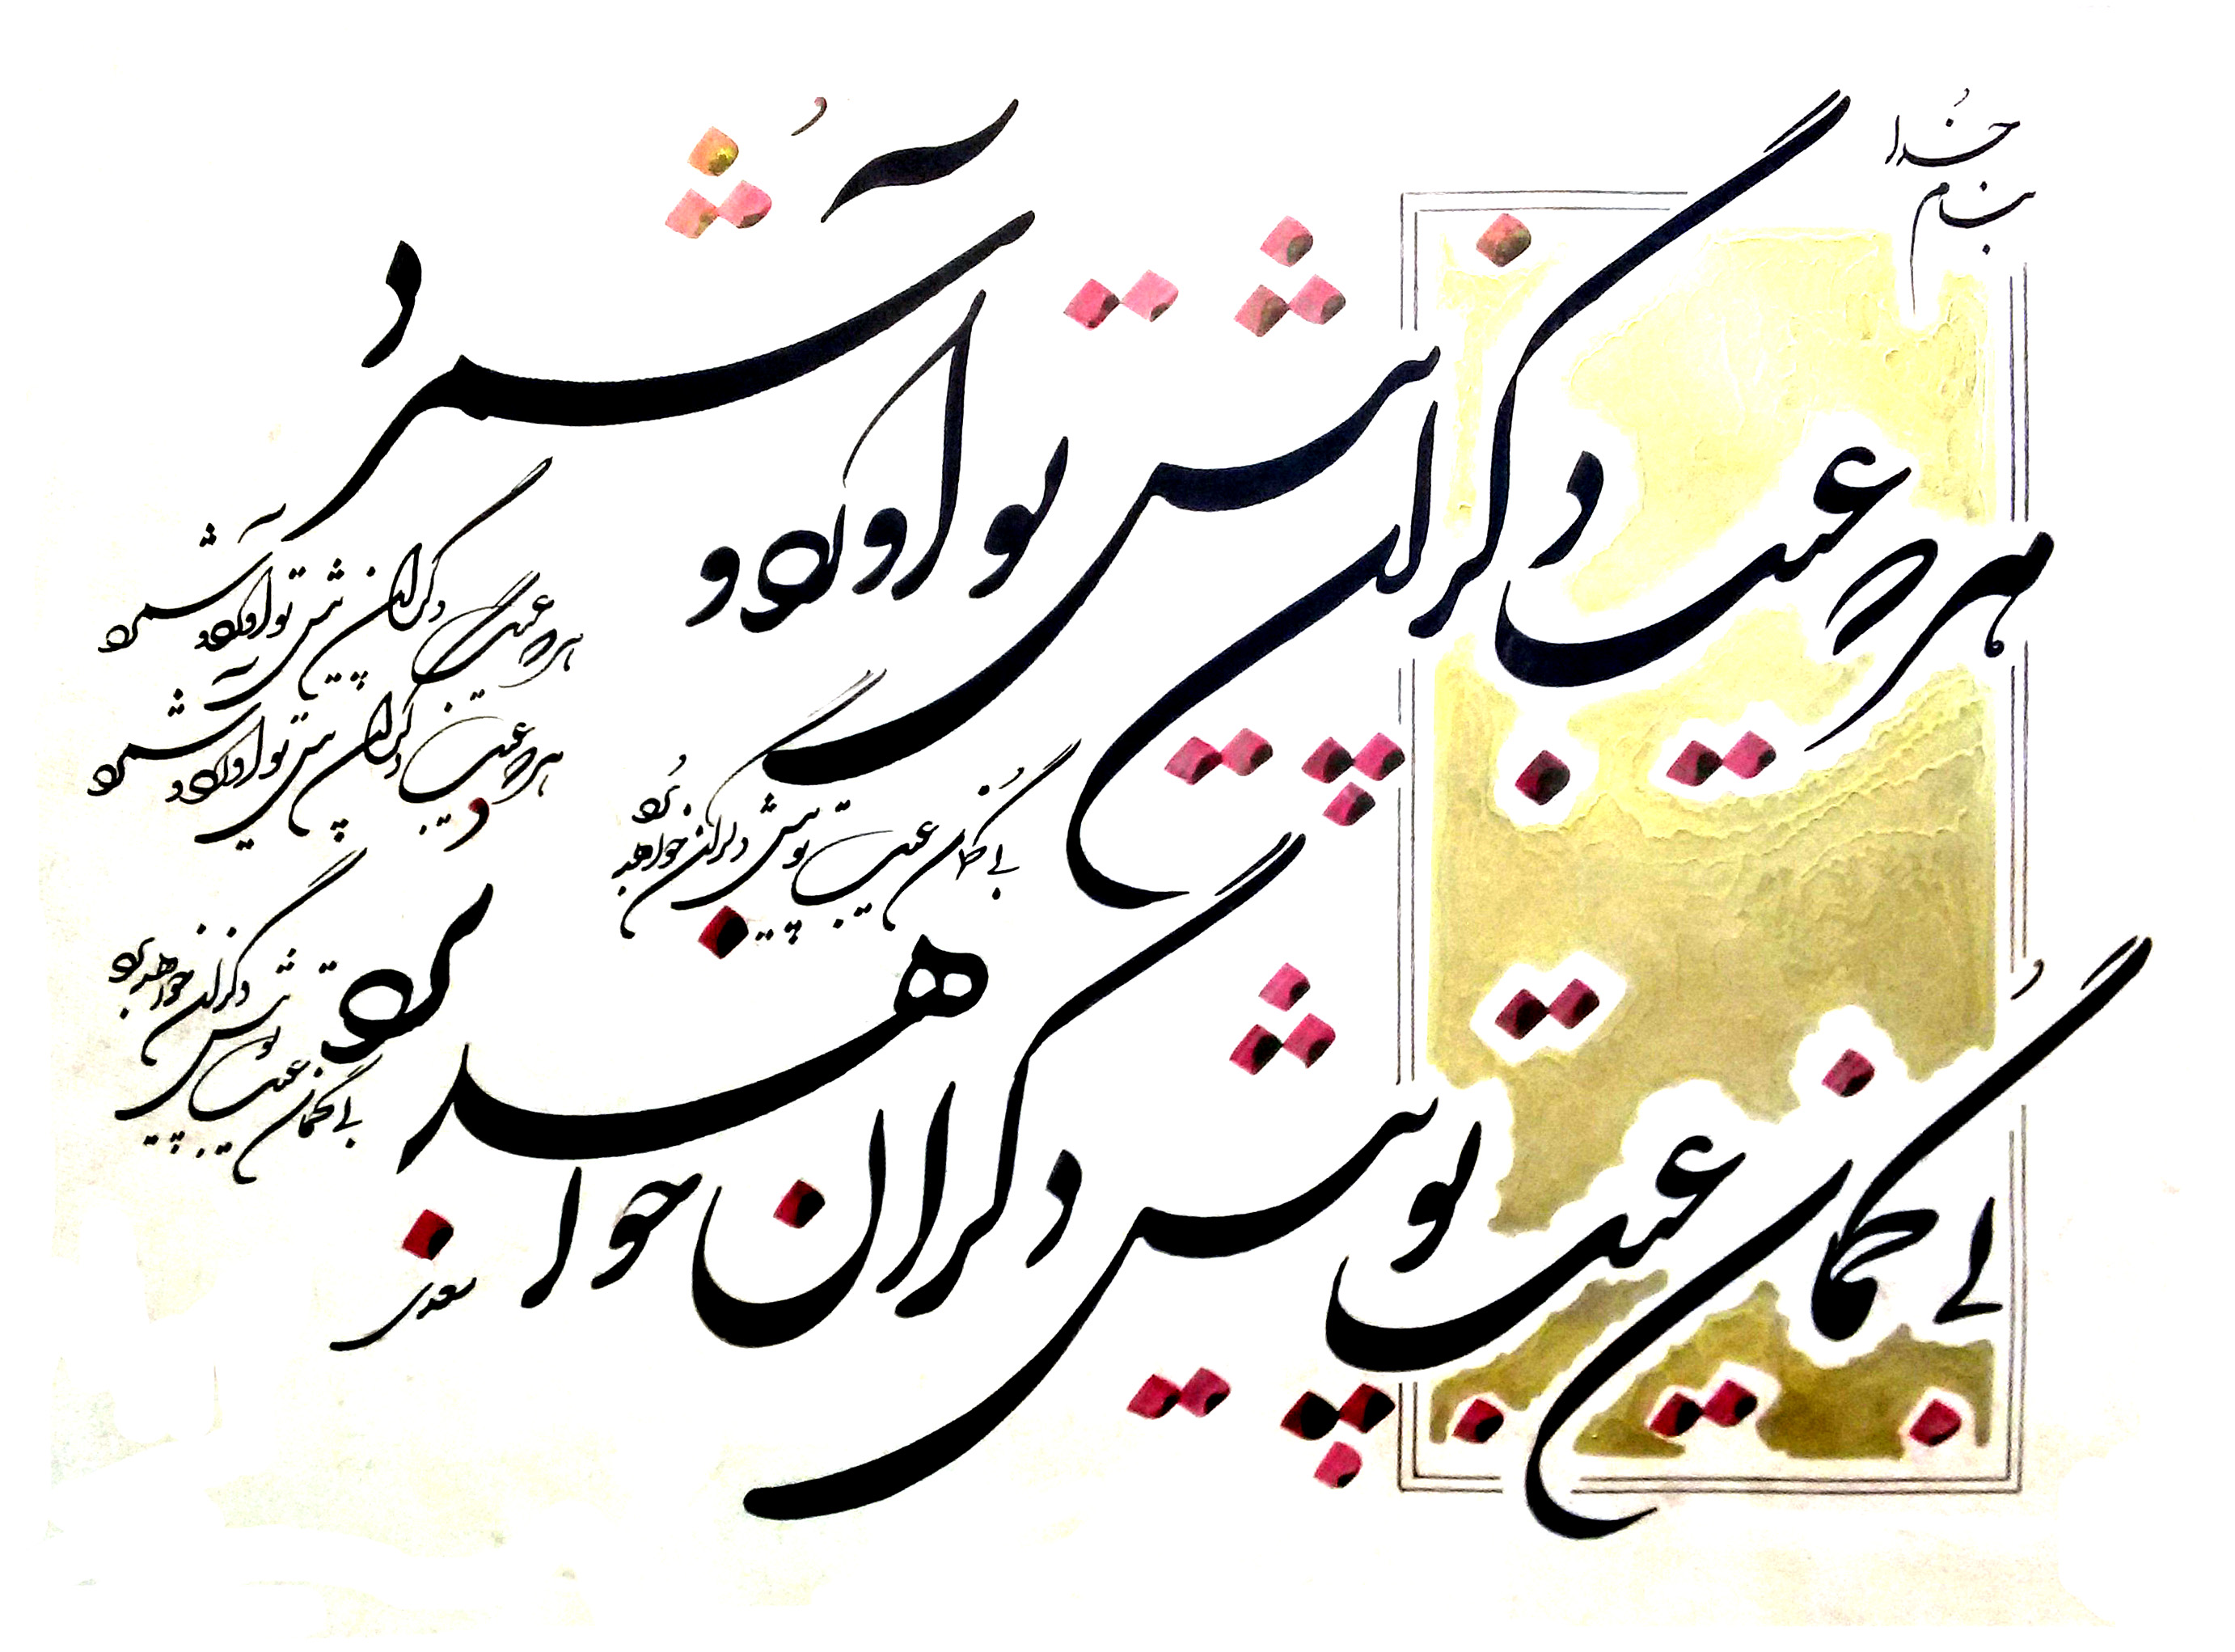 بنام خدا
هر که عیب دگران پیش تو آورد و شمرد
بی گمان عیب تو پیش دگران خواهد برد
هر که عیب دگران پیش تو آورد و شمرد
هر که عیب دگران پیش تو آورد و شمرد
بی گمان عیب تو پیش دگران خواهد برد
بی گمان عیب تو پیش دگران خواهد برد
سعدی